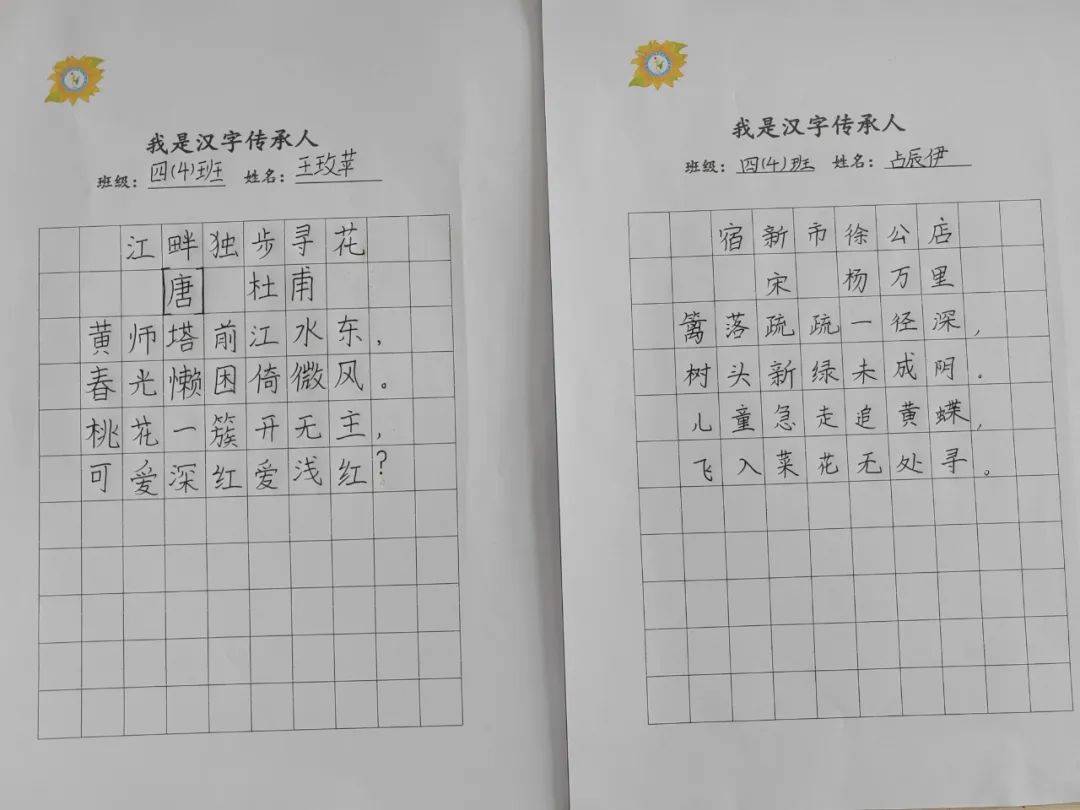 我是汉字传承人
班级：四(4)班 姓名：王玫苹
江畔独步寻花
[唐] 杜甫
黄师塔前江水东，
春光懒困倚微风。
桃花一簇开无主，
可爱深红爱浅红？
我是汉字传承人
班级：四(4)班 姓名：占辰伊
宿新市徐公店
宋 杨万里
篱落疏疏一径深，
树头新绿未成阴。
儿童急走追黄蝶，
飞入菜花无处寻。